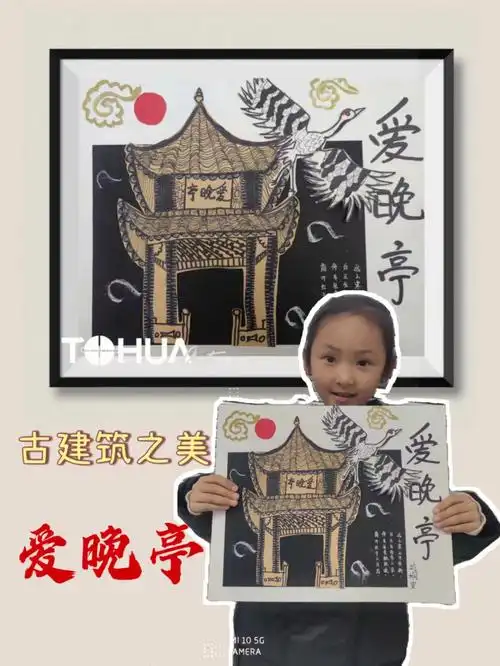 爱晚亭
爱晚亭
TOHUA
古建筑之美
爱晚亭
爱晚亭
爱晚亭
MI 10 5G
CAMERA